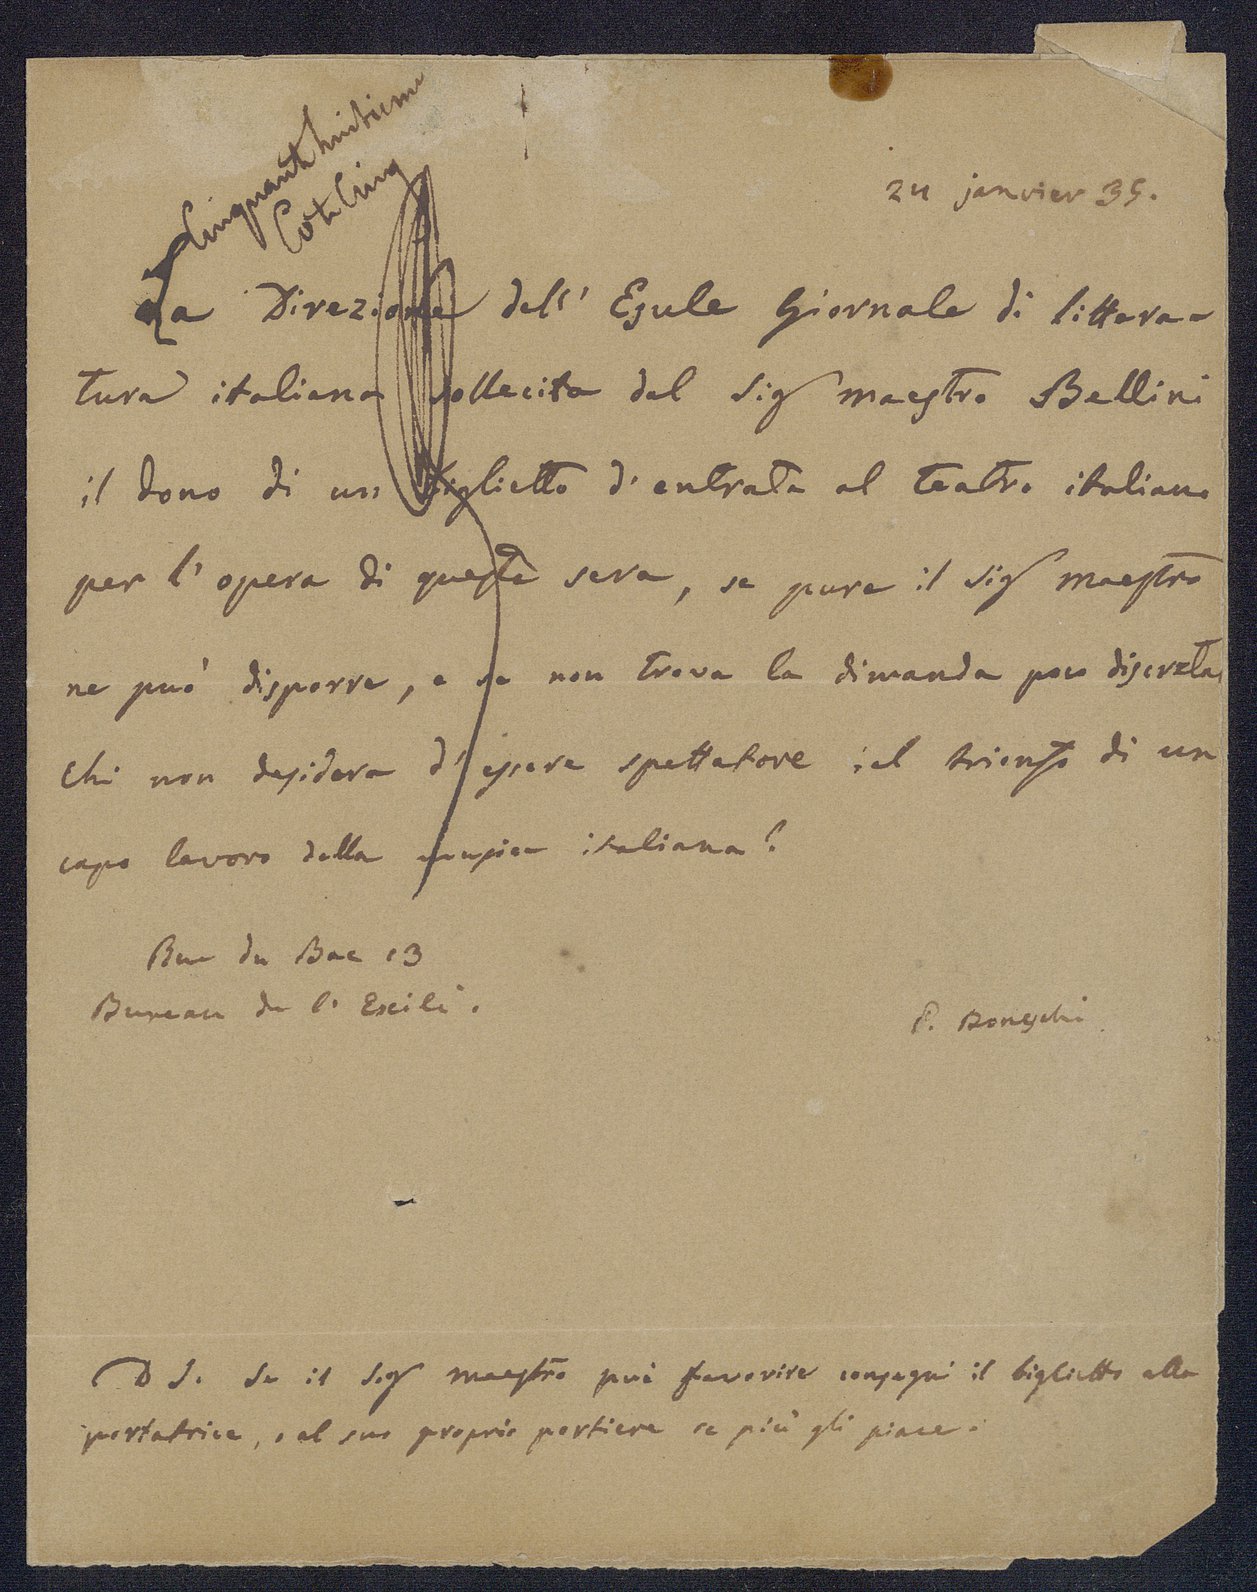 Cinquant huitieme
Cote Cinq
24 janvier 35.
La Direzione dell' Esule Giornale di littera-
tura italiana sollecita dal Sig maestro Bellini
il dono di un biglietto d'entrata al teatro italiano
per l'opera di questa sera, se pure il Sig maestro
ne può disporre, e se non trova la dimanda poco discreta
Chi non desidera d'essere spettatore del trionfo di un
capo lavoro della musica italiana?
Rue du Bac 13
Bureau de l'Exilé.
P. Boneschi
P S. Se il Sig maestro può favorire consegni il biglietto alla
portatrice, o al suo proprio portiere se più gli piace.